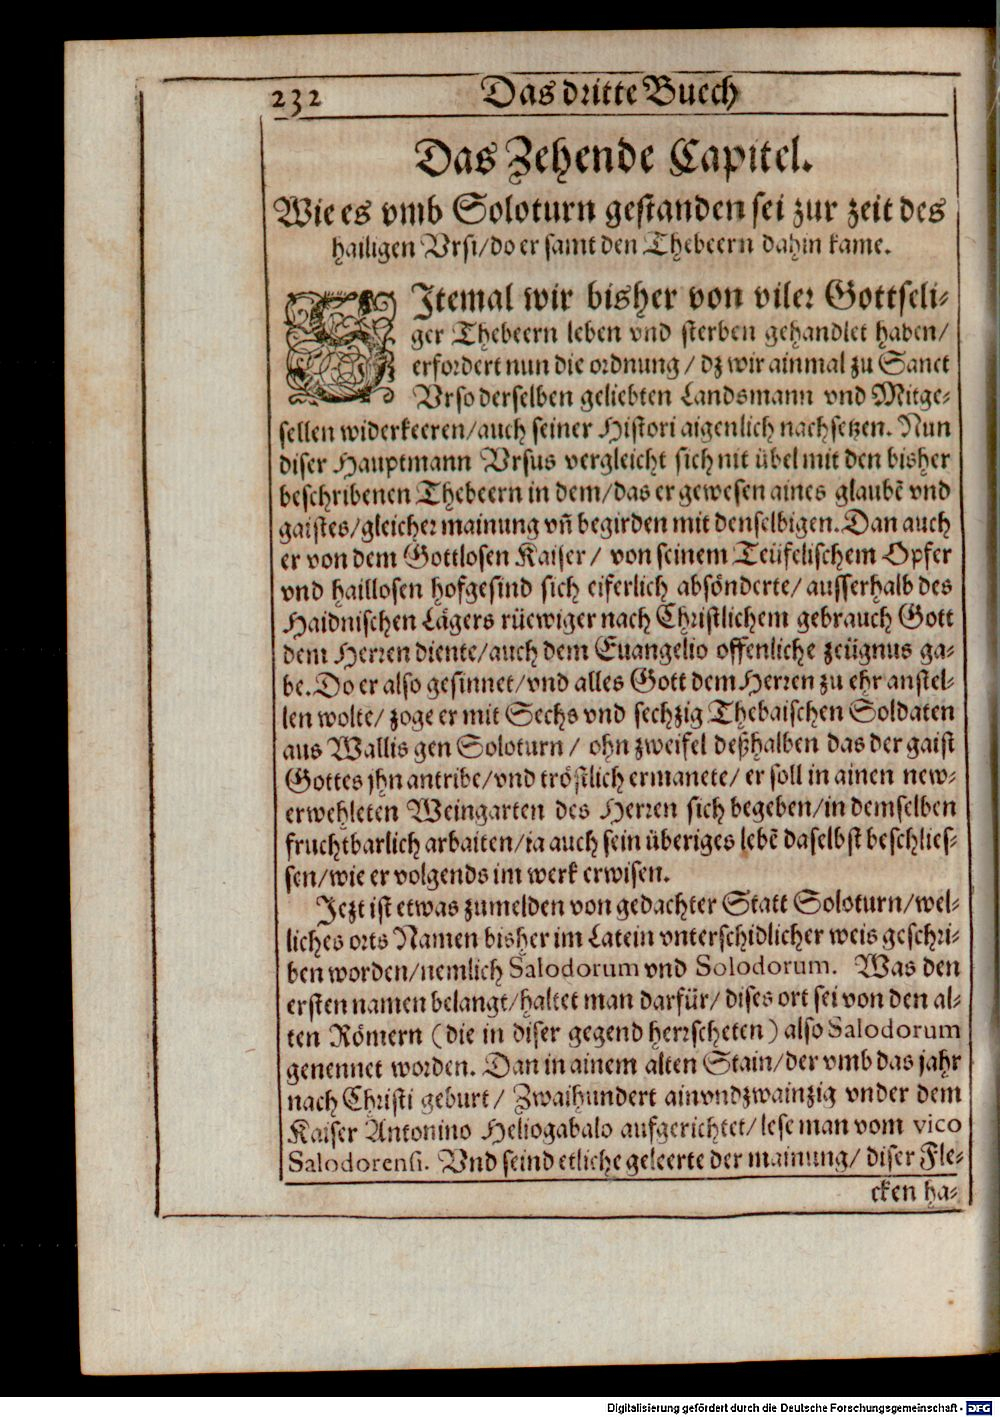 232 Das dritte Buech
Das Zehende Capitel.
Wie es vmb Soloturn gestanden sei zur zeit des
hailigen Vrsi/do er samt den Thebeern dahin kame.
SJtemal wir bisher von viler Gottseli-
ger Thebeern leben vnd sterben gehandlet haben/
erfordert nun die ordnung / dz wir ainmal zu Sanct
Vrso derselben geliebten Landsmann vnd Mitge-
sellen widerkeeren/auch seiner Histori aigenlich nachsetzen. Nun
diser Hauptmann Vrsus vergleicht sich nit übel mit den bisher
beschribenen Thebeern in dem/das er gewesen aines glaubẽ vnd
gaistes/gleicher mainung vñ begirden mit denselbigen. Dan auch
er von dem Gottlosen Kaiser / von seinem Teüfelischem Opfer
vnd haillosen hofgesind sich eiferlich absönderte/ ausserhalb des
Haidnischen Lägers rüewiger nach Christlichem gebrauch Gott
dem Herren diente/auch dem Euangelio offenliche zeügnus ga-
be. Do er also gesinnet/vnd alles Gott dem Herren zu ehr anstel-
len wolte/ zoge er mit Sechs vnd sechzig Thebaischen Soldaten
aus Wallis gen Soloturn / ohn zweifel deßhalben das der gaist
Gottes jhn antribe/vnd tröstlich ermanete/ er soll in ainen new-
erwehleten Weingarten des Herren sich begeben/in demselben
fruchtbarlich arbaiten/ia auch sein überiges lebẽ daselbst beschlies-
sen/wie er volgends im werk erwisen.
Jezt ist etwas zumelden von gedachter Statt Soloturn/wel-
liches orts Namen bisher im Latein vnterschidlicher weis geschri-
ben worden/nemlich Salodorum vnd Solodorum. Was den
ersten namen belangt/haltet man darfür/ dises ort sei von den al-
ten Römern (die in diser gegend herrscheten) also Salodorum
genennet worden. Dan in ainem alten Stain/der vmb das jahr
nach Christi geburt/ Zwaihundert ainvndzwainzig vnder dem
Kaiser Antonino Heliogabalo aufgerichtet/lese man vom vico
Salodorensi. Vnd seind etliche geleerte der mainung/ diser Fle-
cken ha-
Digitalisierung gefördert durch die Deutsche Forschungsgemeinschaft - DFG